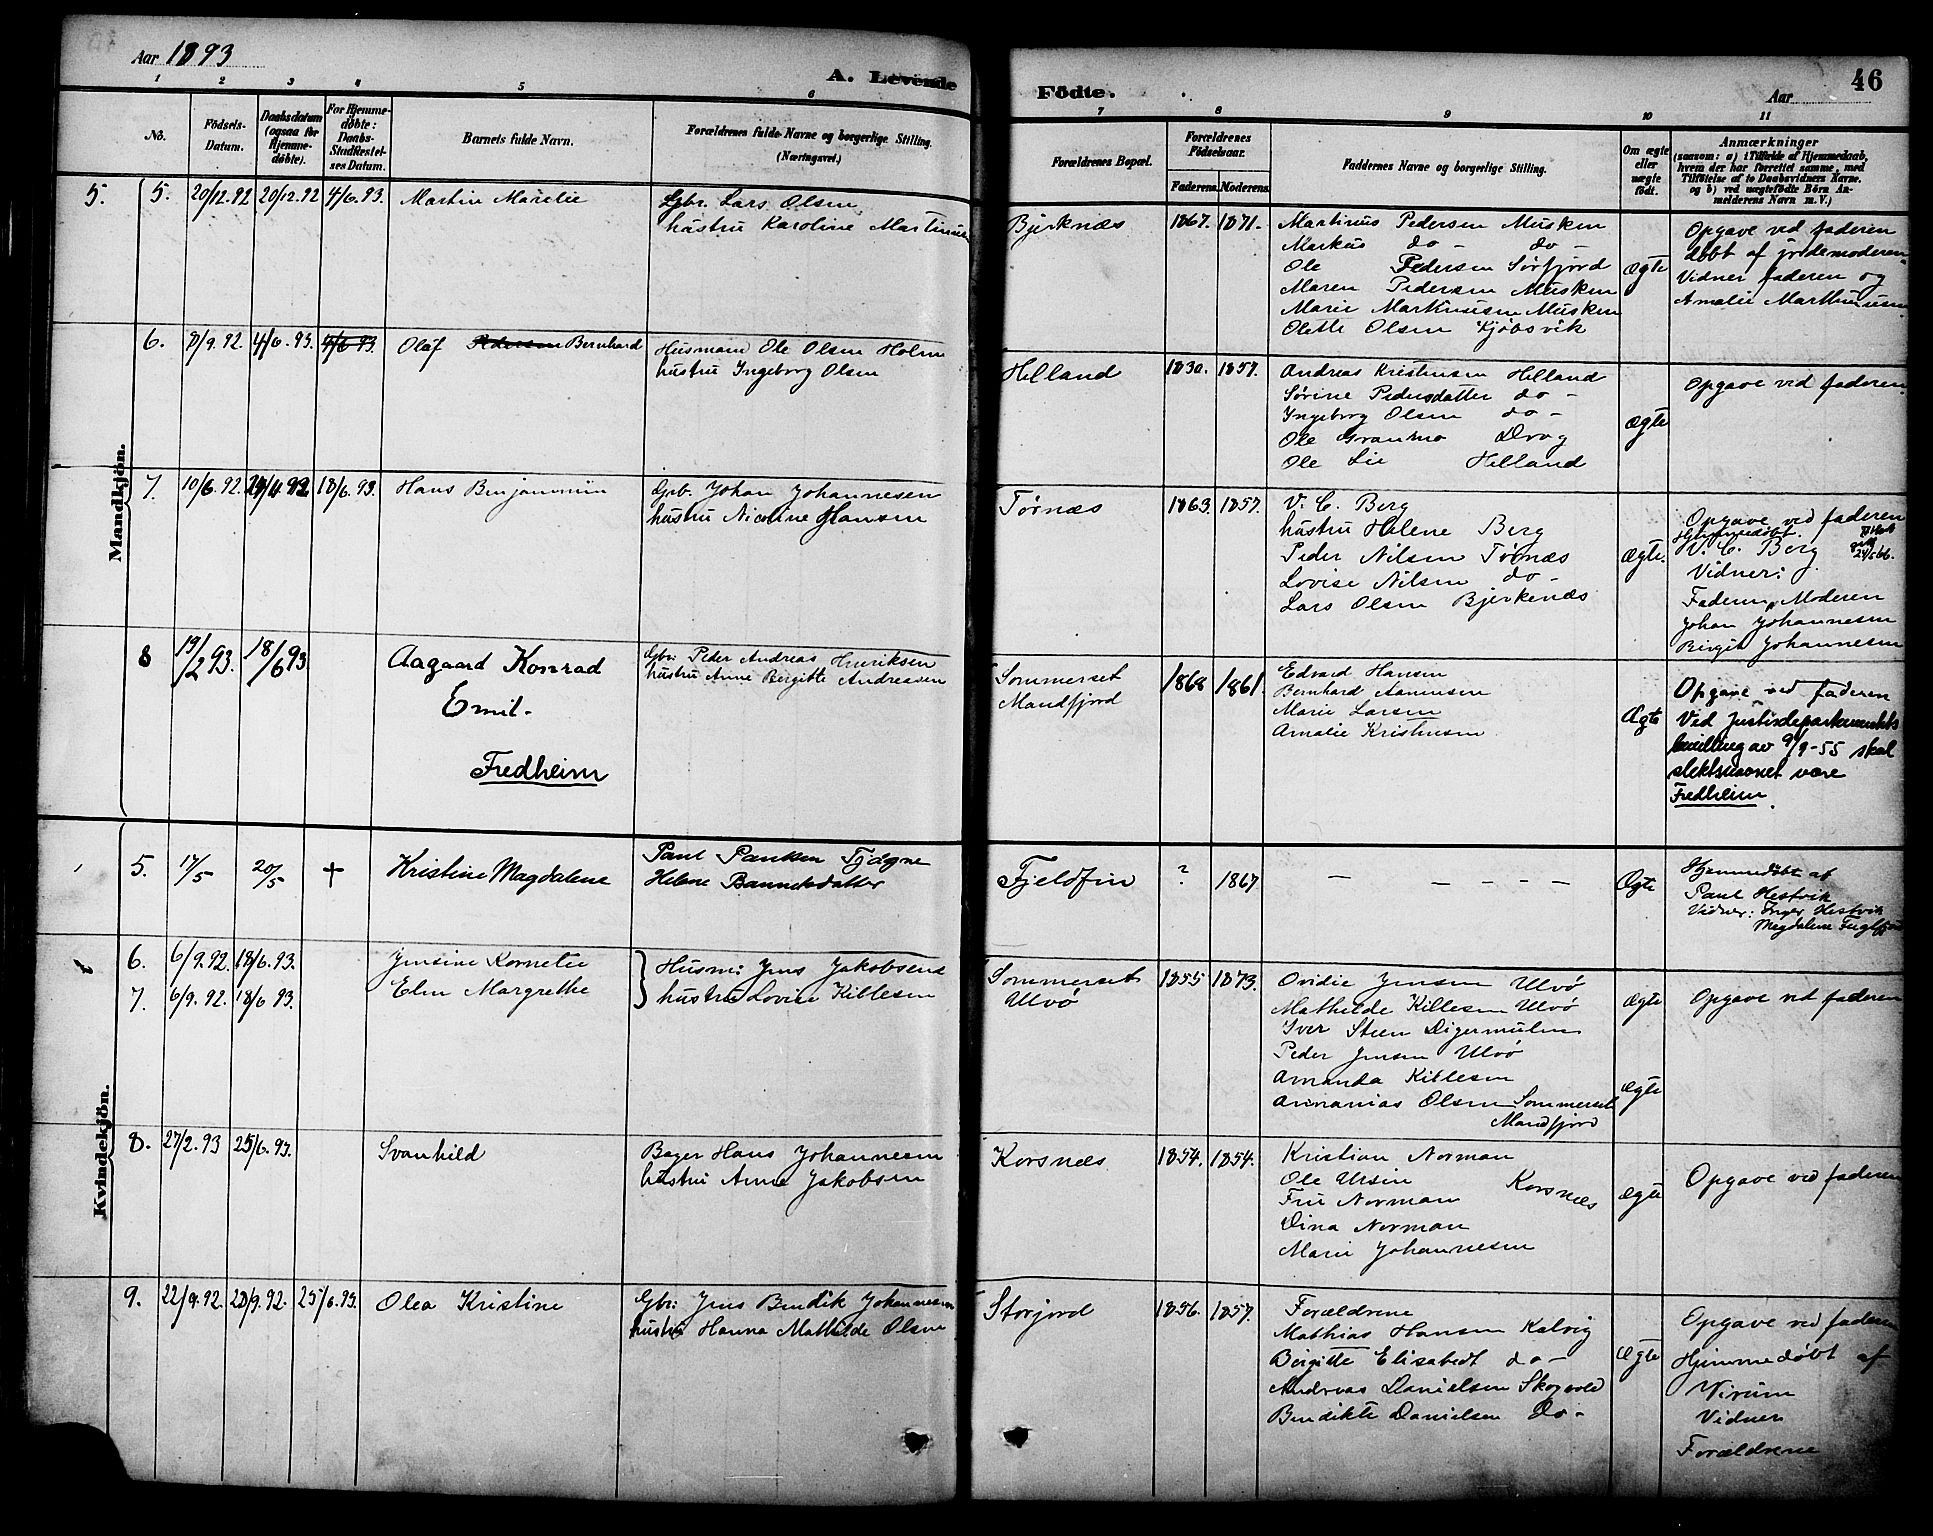 Aar 1893
A. Levende
Födte.
Aar
46
1 2 3 4 5 6 7 8 9 10 11
No.
Födsels-Datum.
Daabsdatum (ogsaa for Hjemme-døbte).
For Hjemme-døbte: Daabs-Stadfæstel-ses Datum.
Barnets fulde Navn.
Forældrenes fulde Navne og borgerlige Stilling. (Næringsvei.)
Forældrenes Bopæl.
Forældrenes Födselsaar.
Faderens. Moderens.
Faddernes Navne og borgerlige Stilling.
Om ægte eller uægte født.
Anmærkninger
(saasom: a) i Tilfælde af Hjemmedaab,
hvem der har forrettet samme, med
Tilföielse af to Daabsvidners Navne.
og b) ved uægtefödte Börn An-
melderens Navn m. V.)
Mandkjön.
5. 5. 20/12.92 20/12.92 4/6.93. Martin
Gbr. Lars Olsen
hustru Karoline
Bjerknæs 1867. 1871.
Martinus Pedersen Musken
Markus do - do -
Ole Pedersen Sørfjord
Maren Pedersen Musken
Marie Martinusen Musken
Olette Olsen Kjöbsvik
ægte
Opgave ved faderen
døbt af jordemoderen
Vidner faderen og
Amalie Marthinusen
6. 8/9.92. 4/6.93. 4/6.93. Olaf Pedersen Bernhard
Husmand Ole Olsen Holm
hustru Ingeborg Olsen
Helland 1830. 1857.
Andreas Kristensen Helland
Sörine Pedersdatter do -
Ingeborg Olsen do -
Ole Granmo Drag
Ole Lie Helland
ægte
Opgave ved faderen
7. 10/6.92. 18/6.93. Hans Benjamin
Grb. Johan Johannesen
hustru Nicoline Hansen
Tørnæs 1863. 1857.
V. C. Berg
hustru Helene Berg
Peder Nilsen Tørnæs
Lovise Nilsen do -
Lars Olsen Bjerkenæs
ægte.
Opgave ved faderen
Hjemmedøbt.
V. C. Berg
Vidner:
Faderen, Moderen
Johan Johannesen
Birgit Johannesen
8 19/2 93. 18/6 93 Aagaard Konrad
Emil.
Fredheim
Gbr: Peder Andreas Henriksen
hustru Anne Bergitte Andreasen
Sommerset
Mandfjord
1868 1861.
Edvard Hansen
Bernhard
Marie Larsen
Amalie Kristensen
Ægte
Opgave ved faderen
Ved Justisdepartementets
bevilling av 9/9-55 skal
slektsnavnet være
Fredheim.
Kvindekjön.
5. 17/5 20/5 + Kristine Magdalene
Paul
Helene
Fjeldfin ? 1867
— — — — —
Ægte
Hjemmedöbt af
Paul Hestvik
Vidner: Inger Hestvik
Magdalene
6. 6/9.92. 18/6.93. Jensine Kornelie
7. 6/9.92. 18/6 93. Elen Margrethe
Husm: Jens Jakobsen
hustru Lovise Killesen
Sommerset
Ulvö
1855 1873.
Ovidie Jensen Ulvö
Mathilde Killesen Ulvö
Iver Steen Digermulen
Peder Jensen Ulvö
Amanda Killesen
Annanias Olsen Sommerset
Mandfjord
Ægte
Ægte
Opgave ved faderen
8. 27/2.93 25/6.93. Svanhild
Bager Hans Johannesen
hustru Anne Jakobsen
Korsnæs 1854. 1854.
Kristian Norman
Ole Ursin Korsnæs
Fru Norman
Dina Norman
Marie Johannesen
Ægte
Opgave ved faderen
9. 22/9.92. 28/9.92. 25/6.93. Olea Kristine
Gbr: Jens Bendik Johannesen
hustru Hanna Mathilde Olsen
Storjord 1856. 1857.
Forældrene
Mathias Hansen Kalvig
Bergitte Elisabedt do -
Andreas Danielsen Skogvold
Bendikte Danielsen Do -
Ægte
Opgave ved faderen
Hjemmedøbt af
Vidner
Forældrene